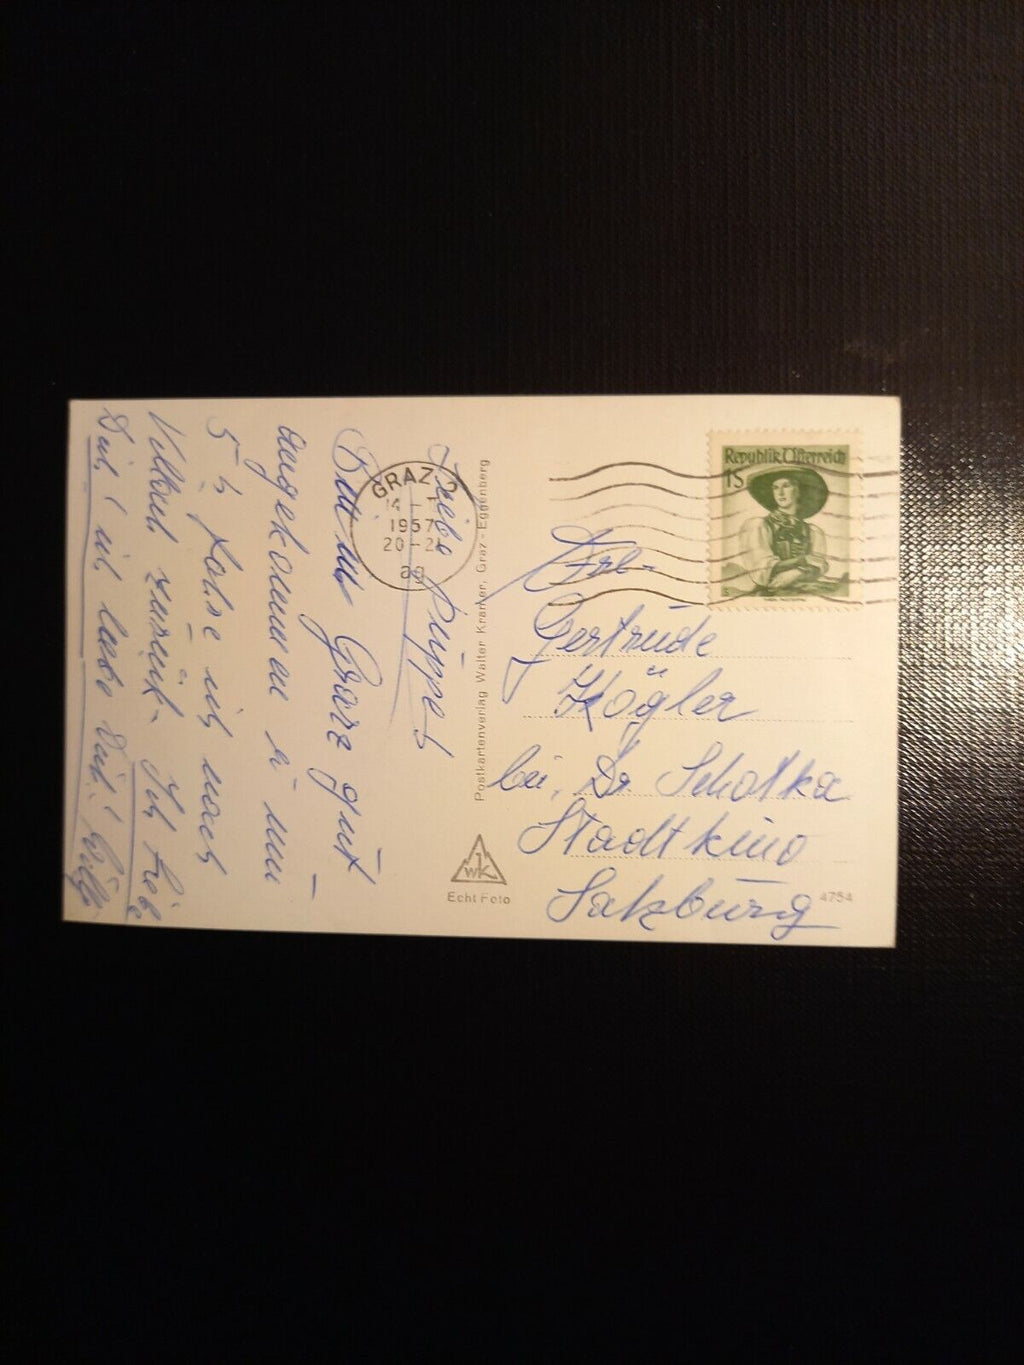 Liebe Puppe!
Bin in Graz gut
angekommen u. um
5 h fahre ich nach
zurück. Ich liebe
Dich! ich liebe Dich!
GRAZ 2
1957
20-21
Postkartenverlag Walter Kramer, Graz-Eggenberg
WK
Echt Foto
Republik Österreich
1S
Frl.
Gertrude
Kögler
bei Dr. Schotka
Stadtkino
Salzburg
4754